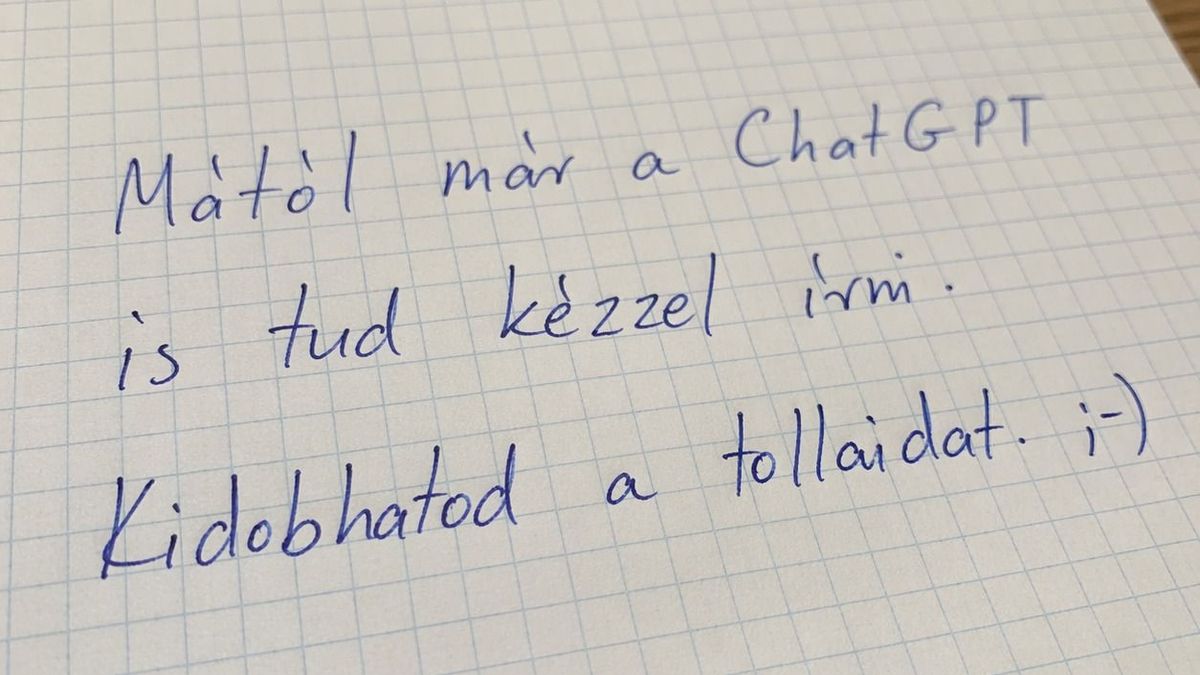 Màtòl màr a ChatGPT
is tud kèzzel írni.
Kidobhatod a tollaidat. ;-)